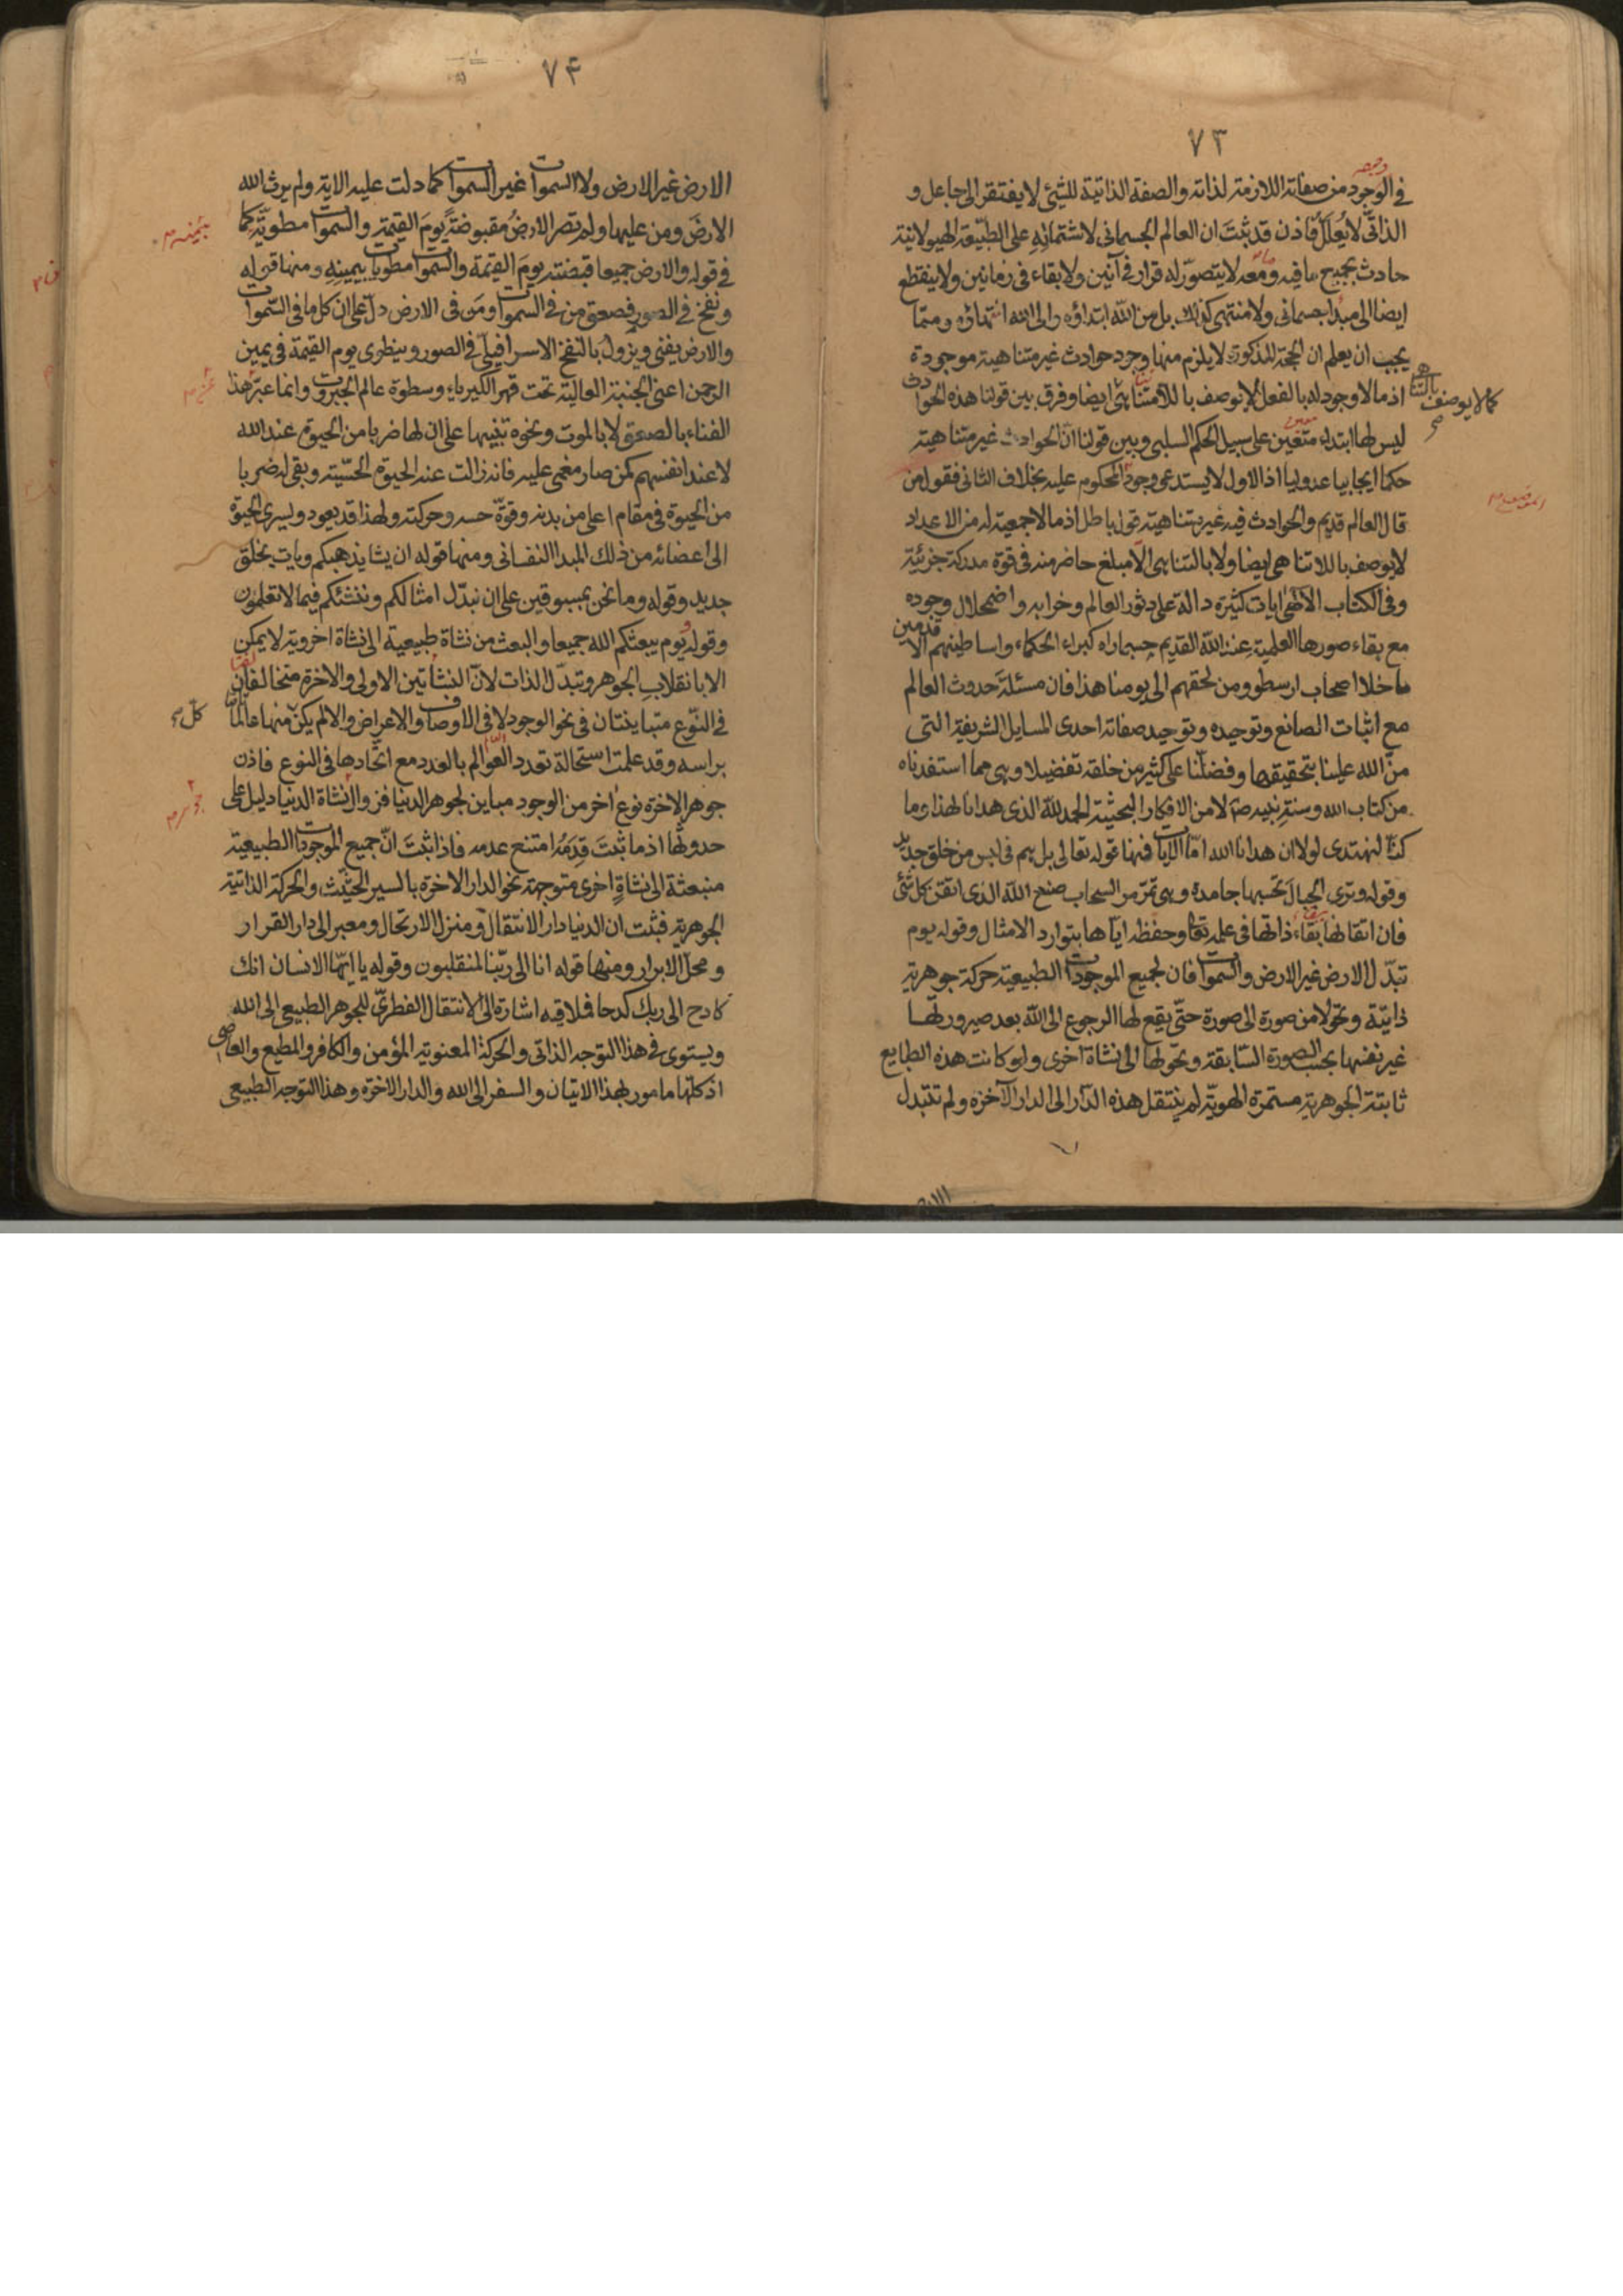 ٧٣
في الوجود من صفاته اللازمة لذاته والصفة الذاتية للشئ لا يفتقر الى جاعل و
الذاتى لا يُعلل فاذن قد ثبتَ ان العالم الجسمانى لاشتمالهِ على الطبيعة الهيولانية
حادث بجميع ما فيه ومعه لا يتصوّر له قرار فى آنين ولا بقاء فى زمانين ولا ينقطع
ايضا الى مبدا جسمانى ولا منتهى كذلك بل من الله ابتداؤه والى الله انتهاؤه ومما
يجب ان يعلم ان الحجة المذكورة لا يلزم منها وجود حوادث غير متناهية موجودة
اذ ما لا وجود له بالفعل لا يوصف باللامتناهى ايضا وفرق بين قولنا هذه الحوادث
كما لا يوصف بالتناهى صح
ليس لها ابتداء متعين على سبيل الحكم السلبى وبين قولنا انّ الحوادث غير متناهية
حكما ايجابيا عدوليا اذ الاول لا يستدعى وجود المحكوم عليه بخلاف الثانى فقول من
قال العالم قديم والحوادث فيه غير متناهية قول باطل اذ ما لا جمعية له من الاعداد
لا يوصف باللاتناهى ايضا ولا بالتناهى الا مبلغ حاضر منه فى قوة مدركة جزئية
وفى الكتاب الالٰهى ايات كثيرة دالة على دثور العالم وخرابه واضمحلال وجوده
مع بقاء صورها العلمية عند الله القديم حسبما راه كبراء الحكماء واساطينهم الاقدمين
ما خلا اصحاب ارسطو ومن لحقهم الى يومنا هذا فان مسئلة حدوث العالم
مع اثبات الصانع وتوحيده وتوحيد صفاته احدى المسايل الشريفة التى
منّ الله علينا بتحقيقها وفضلّنا على كثير من خلقه تفضيلا وهى مما استفدناه
من كتاب الله وسنة نبيه صَ لا من الافكار البحثية الحمد لله الذى هدانا لهذا وما
كنّا لنهتدى لولا ان هدانا الله امّا الايات فمنها قوله تعالى بل هم فى لبس من خلق جديد
وقوله وترى الجبالَ تحسبها جامدة وهى تمرّ مر السحاب صنع الله الذى اتقن كل شئ
فان اتقانها بقاء ذاتها فى علمه تعا وحفظه اياها بتوارد الامثال وقوله يوم
تبدّل الارض غير الارض والسموات فان لجميع الموجودات الطبيعية حركة جوهرية
ذاتيّة وتحولا من صورة الى صورة حتّى يقع لها الرجوع الى الله بعد صيرورتها
غير نفسها بحسب الصورة السّابقة وتحولها الى نشاة اخرى ولو كانت هذه الطبايع
ثابتة الجوهرية مستمرة الهويّة لم ينتقل هذه الدار الى الدار الآخرة ولم تتبدل
٧۴
الارض غير الارض ولا السموات غير السموات كما دلت عليه الاية ولم يرث الله
الارضَ ومن عليها ولم تصر الارضُ مقبوضةً يومَ القيمة والسموات مطويّة كما
بيمينه م
فى قوله والارض جميعا قبضته يوم القيمة والسموات مطويات بيمينه ومنها قوله
ونفخ فى الصور فصعق من فى السموات ومَن فى الارض دلّ على ان كل ما فى السّموات
والارض يفنى ويزول بالنفخ الاسرافيلى فى الصور وينطوى يوم القيمة فى يمين
الرحمن اعنى الجنبة العالية تحت قهر الكبرياء وسطوة عالم الجبروت وانما عبّر هٰذا
الفناء بالصعق لا بالموت ونحوه تنبيها على ان لها ضربا من الحيوة عند الله
لا عند انفسهم كمن صار مغمى عليه فانه زالت عنه الحيوة الحسّية وبقى له ضربا
من الحيوة فى مقام اعلى من بدنه وقوّة حسه وحركته ولهذا قد يعود ويسرى الحيوة
الى اعضائه من ذلك المبدا النفسانى ومنها قوله ان يشا يذهبكم ويات بخلق
جديد وقوله وما نحن بمسبوقين على ان نبدّل امثالكم وننشئكم فيما لا تعلمون
وقوله يوم يبعثكم الله جميعا والبعث من نشاة طبيعية الى نشاة اخروية لا يمكن
الا بانقلابِ الجوهر وتبدّل الذات لانّ النشاتين الاولى والاخرة متخالفان
فى النّوع متباينتان فى نحو الوجود لا فى الاوصاف والاعراض والا لم يكن منها عالمًا
كلّ صح
براسه وقد علمت استحالة تعدد العوالم بالعدد مع اتّحادها فى النوع فاذن
جوهر الاخرة نوعٌ اخر من الوجود مباين لجوهر الدنيا فزوال نشاة الدنيا دليل على
حدوثها اذ ما ثبتَ قِدَمُه امتنع عدمه فاذا ثبتَ انّ جميع الموجودات الطبيعية
منبعثة الى نشاةٍ اخرى متوجهة نحو الدار الاخرة بالسير الحثيث والحركة الذاتية
الجوهرية فثبت ان الدنيا دار الانتقال ومنزل الارتحال ومعبر الى دار القرار
ومحل الابرار ومنها قوله انا الى ربّنا لمنقلبون وقوله يا ايّها الانسان انك
كادح الى ربك كدحا فملاقيه اشارة الى الانتقال الفطرىّ للجوهر الطبيعى الى الله
ويستوى فى هذا التوجه الذاتى والحركة المعنوية المؤمن والكافر والمطيع والعاصى
اذ كلّها مامور لهذا الاتيان والسفر الى الله والدار الاخرة وهذا التوجه الطبيعى